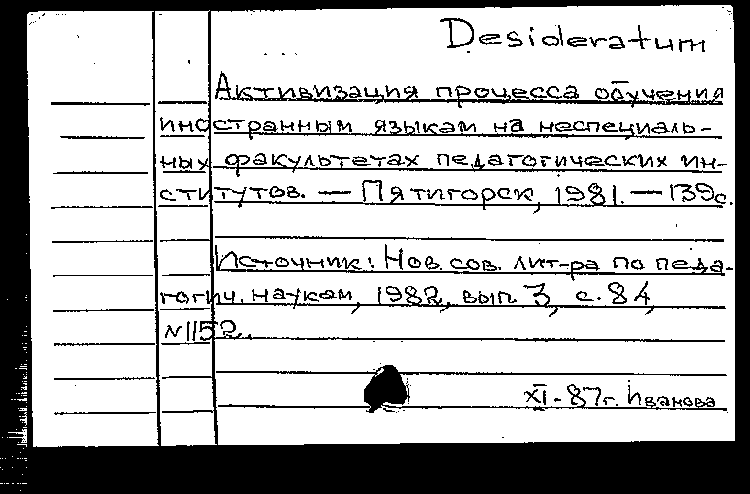 Desideratum
Активизация процесса обучения
иностранным языкам на неспециаль-
ных факультетах педагогических ин-
ститутов. — Пятигорск, 1981. — 139с.
Источник: Нов. сов. лит-ра по педа-
гогич. наукам, 1982, вып. 3, с. 84,
№1152.
XI-87г. Иванова